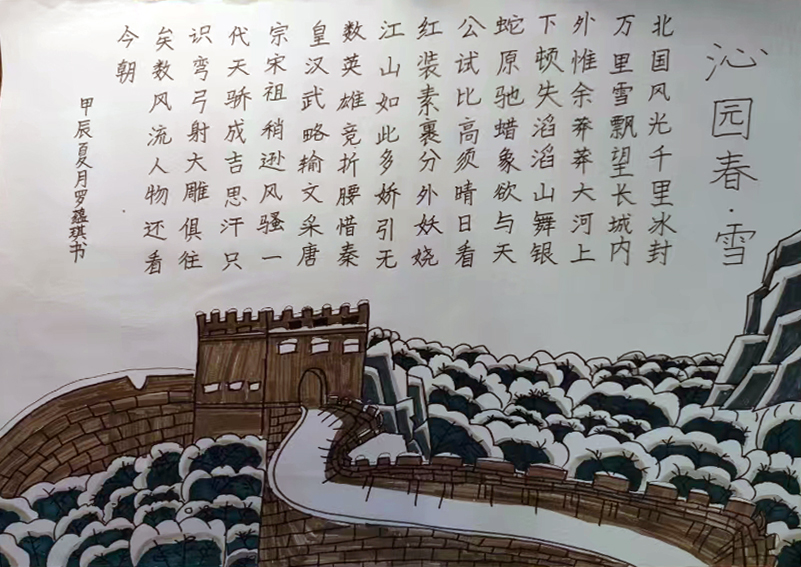 沁园春·雪
北国风光千里冰封
万里雪飘望长城内
外惟余莽莽大河上
下顿失滔滔山舞银
蛇原驰蜡象欲与天
公试比高须晴日看
红装素裹分外妖娆
江山如此多娇引无
数英雄竞折腰惜秦
皇汉武略输文采唐
宗宋祖稍逊风骚一
代天骄成吉思汗只
识弯弓射大雕俱往
矣数风流人物还看
今朝
甲辰夏月罗蕴琪书